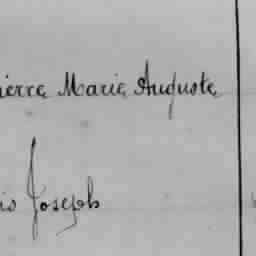 ierre Marie Auguste
is Joseph